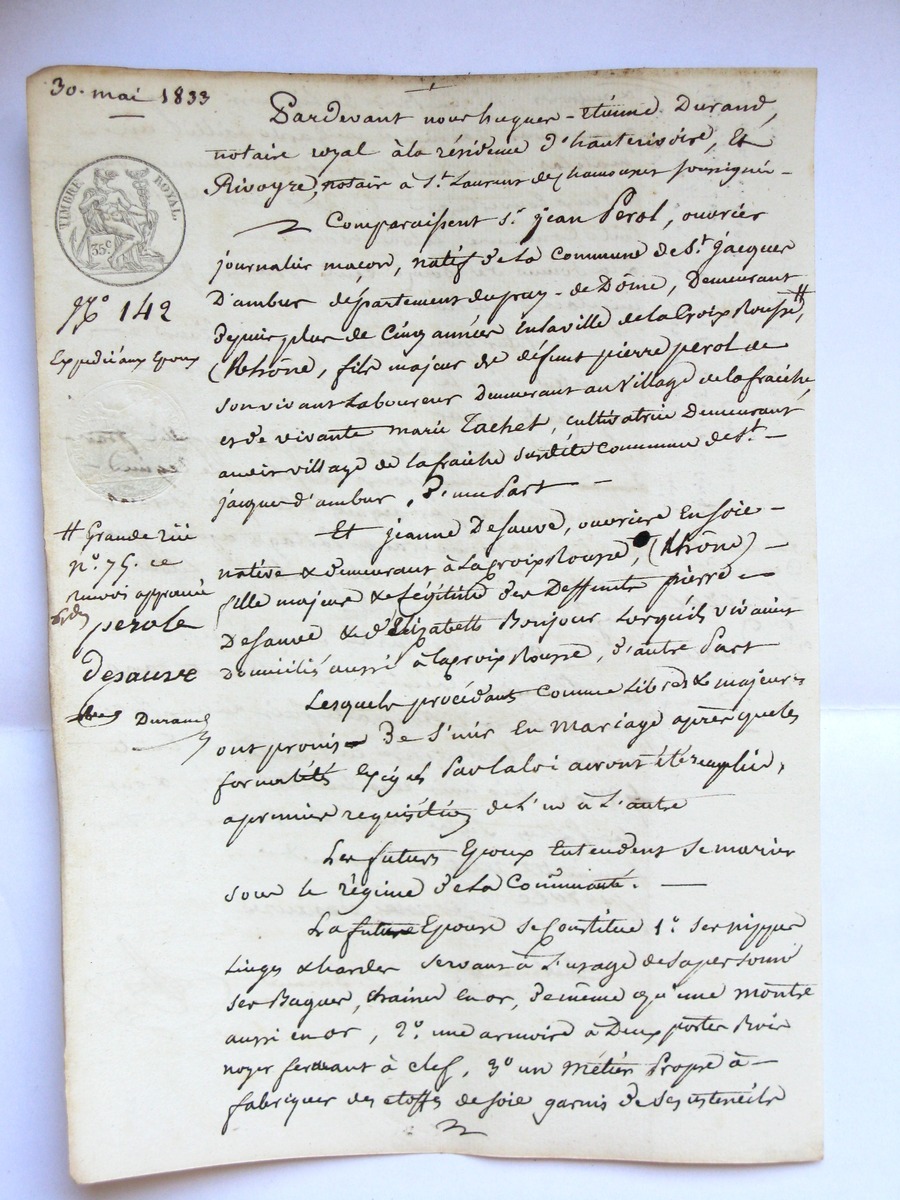 30. mai 1833
TIMBRE ROYAL.
35c
N° 142
Expedié aux Epoux
# Grande rüe
n°. 75. ce
renvoi approuvé
perole
desauve
Durand
Pardevant nous hugues-étienne Durand,
notaire royal à la résidence d'hauterivoire, Et
Rivoyre, notaire à St. Laurent de Chamousset soussignés -
Comparaissent Sr. jean Perol, ouvrier
journalier maçon, natif de La Commune de St. jacques
D'ambur département du puy-de Dôme, Demeurant
depuis plus de Cinq années En la ville de la Croix Rousse #,
(Rhône, fils majeur de défunt pierre perol de
son vivant Laboureur Demeurant au Village de la fraiche,
et de vivante marie Tachet, cultivatrice Demeurant
audit village de la fraiche susdite commune de St. -
jacques d'ambur, d'une Part -
Et jeanne Desauve, ouvrière En Soie -
native & demeurant à La croix Rousse, (Rhône) -
fille majeure & Légitime des Deffunts pierre -
Desauve & d'Elizabeth Bonjour Lorsqu'ils vivaient
domiciliés aussi à la croix Rousse, d'autre Part
Lesquels procédant comme Libres & majeurs
ont promis de S'unir En Mariage après que les
formalités Exigées Par la loi auront été remplies,
a premier requisition de L'un à L'autre
Les futurs Epoux Entendent Se marier
sous le régime de La Communauté. -
La future Epouse se Constitue 1°. Ses nippes
Linges & hardes servant à L'usage de sa personne
ses Bagues, chaine en or, de même qu'une montre
aussi en or, 2°. une armoire à Deux portes Bois
noyer fermant à clef, 3° un métier Propre à -
fabriquer des etoffes de soie garnis de Ses ustensiles